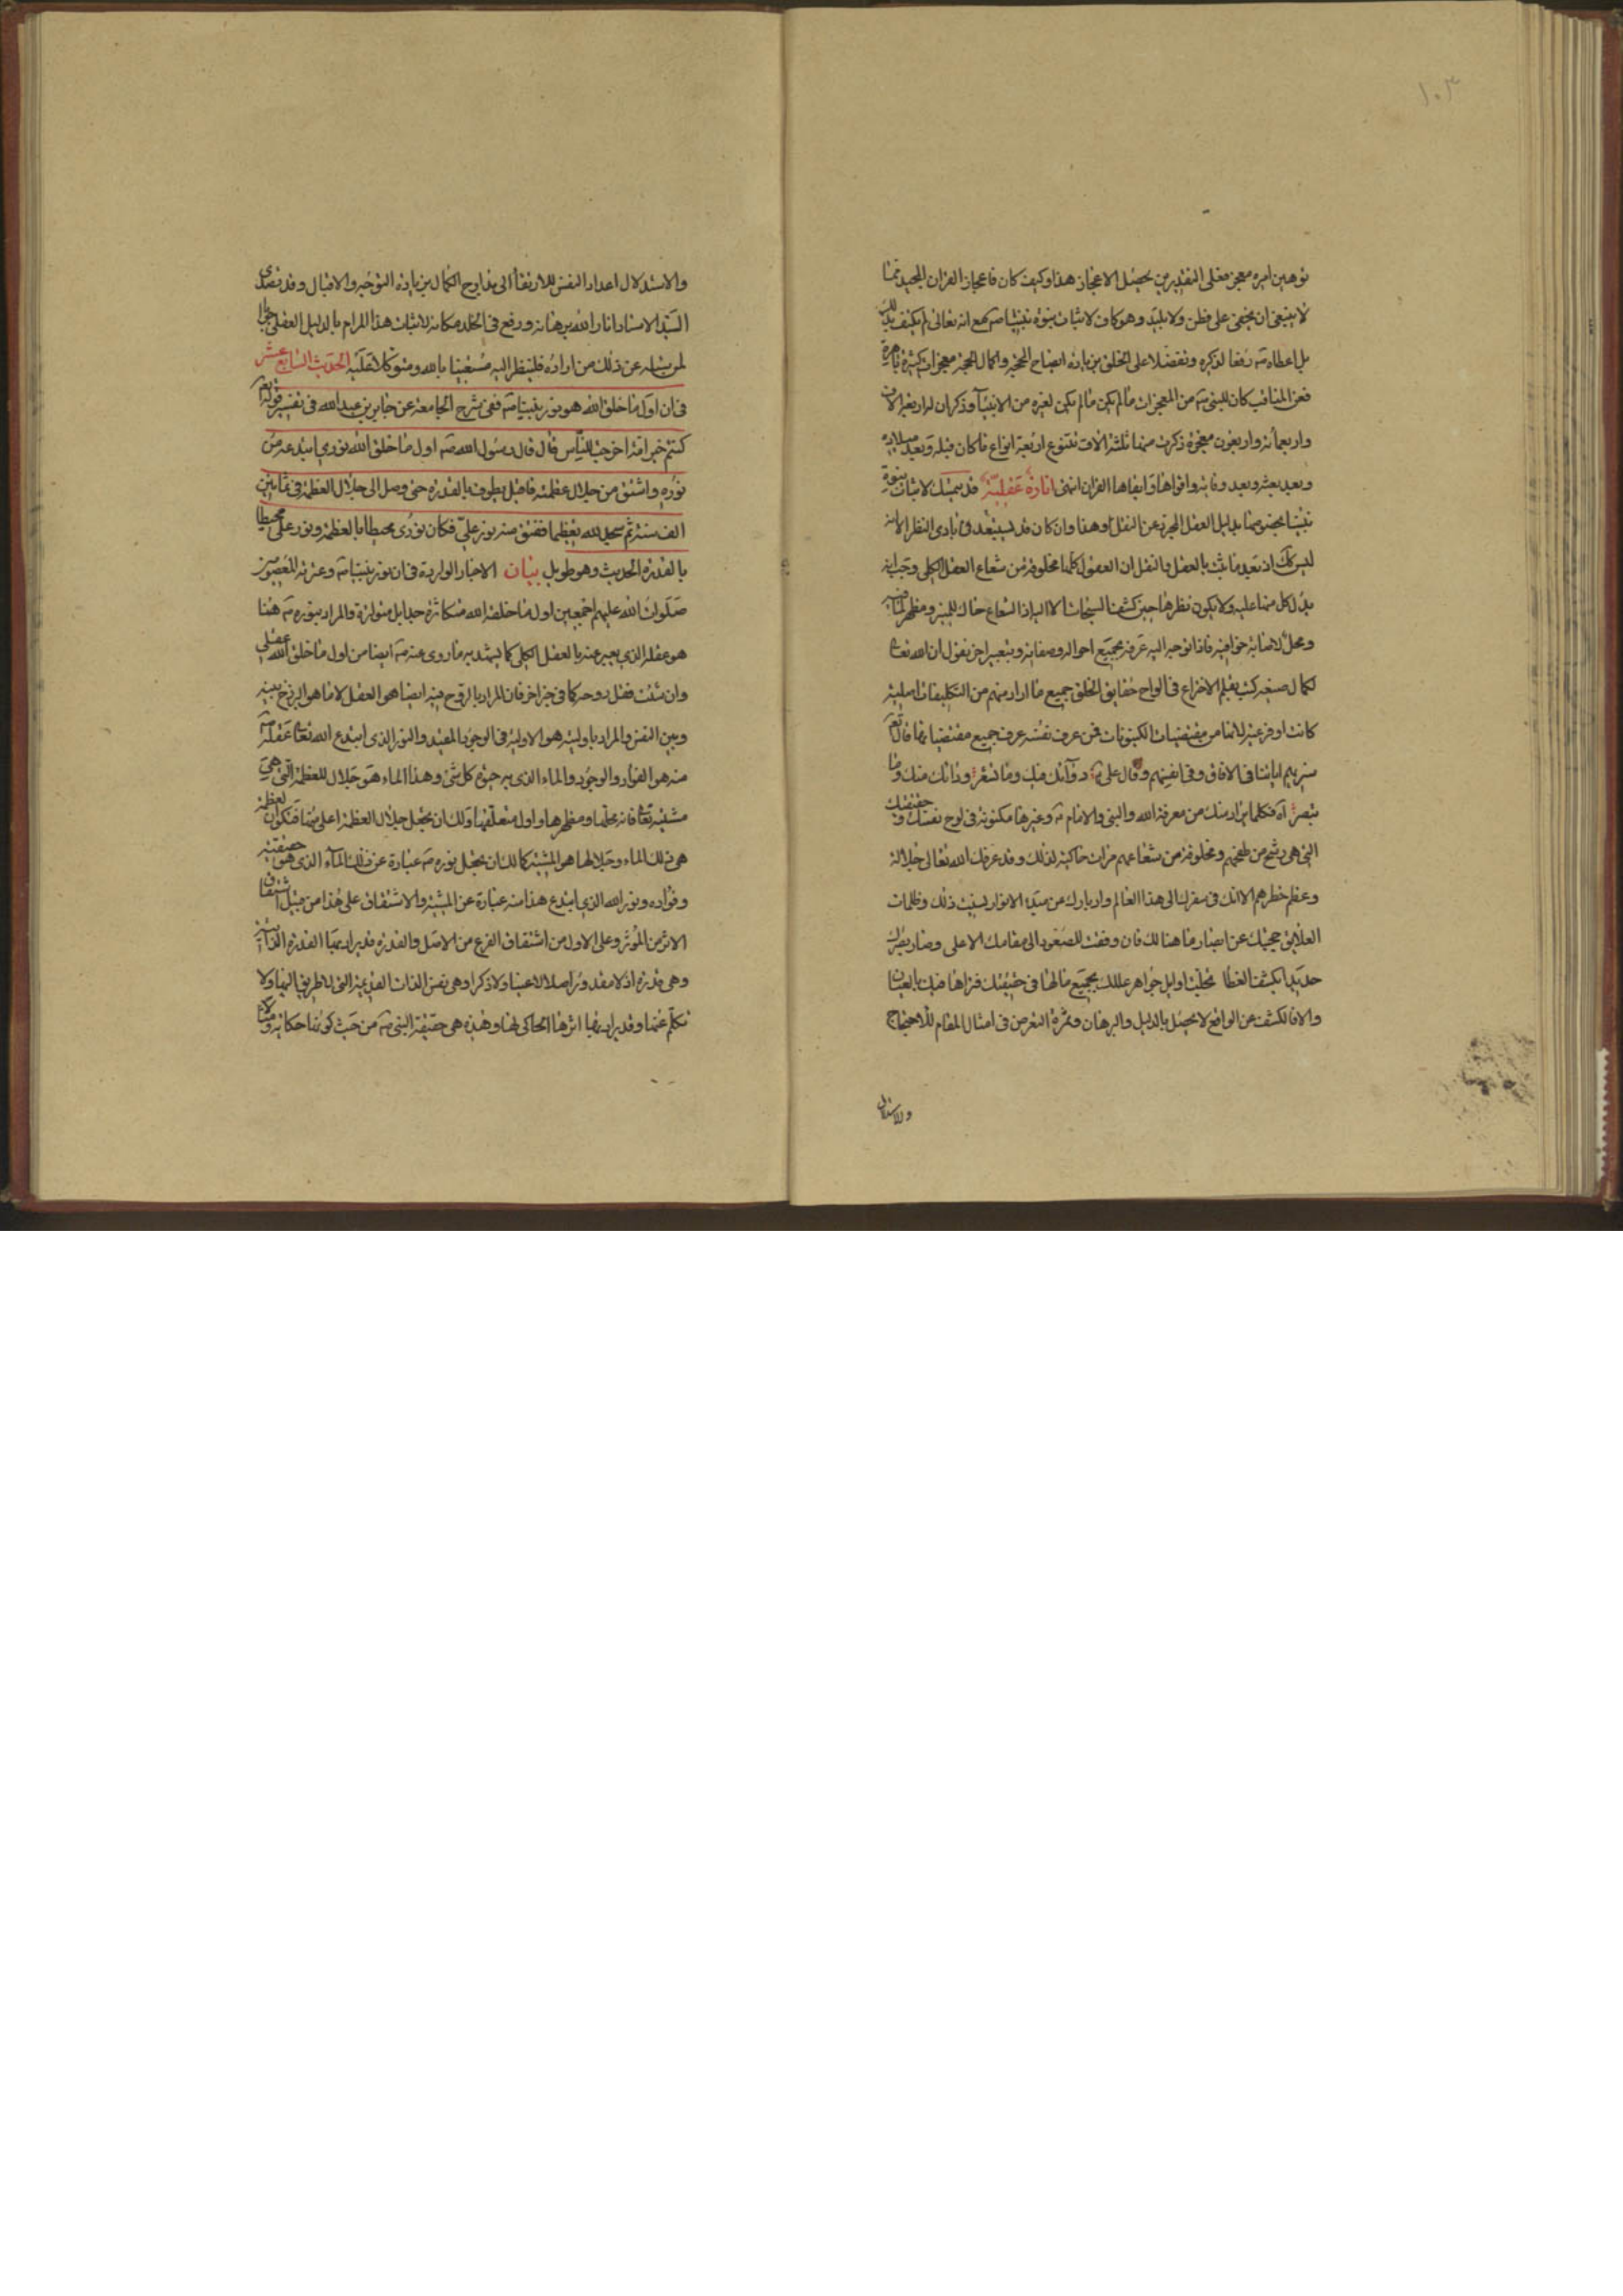 ١٠٣
توهين امره معجز فعلى التقديرين يحصل الاعجاز هذا وكيف كان فاعجاز القران المجيد مما
لا ينبغى ان يخفى على فطن ولا بليد وهو كاف لاثبات نبوة نبينا صه مع انه تعالى لم يكتف بذلك
بل اعطاه صه رفعا لذكره وتفضلا على الخلق بزيادة ايضاح المحجة واكمال الحجة معجزات كثيرة باهرة
فعن المناقب كان للنبى صه من المعجزات مالم يكن لغيره من الانبيآء وذكر ان له اربعة الاف
واربعمائة واربعون معجزة ذكرت منها ثلثة الاف تتنوع اربعة انواع ما كان قبله وبعد ميلاده
وبعد بعثه وبعد وفاته واقواها وابقاها القران انتهى انارة عقلية قد يتمسك لاثبات نبوة
نبينا بخصوصها بدليل العقل المجرد عن النقل وهذا وان كان قد يستبعد فى بادى النظر الا انه
ليس كك اذ بعد ما ثبت بالعقل والنقل ان العقول كلها مخلوقة من شعاع العقل الكلى وجب انه
يدل كل منها عليه ولا يكون نظرها حين كشف السبحات الا اليه اذ الشعاع حاك للمنير ومظهر لما فيه
ومحل لاصابة خوافيه فاذا توجه اليه عرفه بجميع احواله وصفاته وبتعبير اخر نقول ان الله تعا
لكمال صنعه كتب بقلم الاختراع فى الواح حقايق الخلق جميع ما اراد منهم من التكليفات اصلية
كانت او فرعية لانها من مقتضيات الكينونات فمن عرف نفسه عرف جميع مقتضياتها قال تعا
سنريهم اياتنا فى الافاق وفى انفسهم وقال على ع دوآئك فيك وما تشعر ودائك منك وما
تبصر آه فكلما يراد منك من معرفة الله والنبى والامام ع وغيرها مكنونة فى لوح نفسك وحقيقتك
التى هى رشح من طفحهم ومخلوقة من شعاعهم مرات حاكية لذلك وقد عرفك الله تعالى جلالة
وعظم خطرهم الا انك فى سفرك الى هذا العالم وادبارك عن مبدء الانوار نسيت ذلك وظلمات
العلايق حجبتك عن ابصار ما هنالك فان وفقت للصعود الى مقامك الاعلى وصار بصرك
حديدا بكشف الغطا تجلت اوايل جواهر عللك بجميع مالها فى حقيقتك فتراها فيك بالعيان
والا فالكشف عن الواقع لا يحصل بالدليل والبرهان وثمرة التعرض فى امثال المقام للاحتجاج
والاستدلال
والاستدلال اعداد النفس للارتقآء الى مدارج الكمال بزيادة التوجه والاقبال وقد تصدى
السيد الاستاد انار الله برهانه ورفع فى الخلد مكانه لاثبات هذا المرام بالدليل العقلى جوابا
لمن سئله عن ذلك من اراده فلينظر اليه مستعينا بالله ومتوكلا عليه الحديث السابع عشر
فى ان اول ما خلق الله هو نور نبينا صه ففى شرح الجامعة عن جابر بن عبد الله فى تفسير قوله تعا
كنتم خير امة اخرجت للناس قال قال رسول الله صه اول ما خلق الله نورى ابتدعه من
نوره واشتق من جلال عظمته فاقبل يطوف بالقدرة حتى وصل الى جلال العظمة فى ثمانين
الف سنة ثم سجد لله تعظيما ففتق منه نور على ع فكان نورى محيطا بالعظمة ونور على محيطا
بالقدرة الحديث وهو طويل بيان الاخبار الواردة فى ان نور نبينا صه وعترته المعصومين
صلوات الله عليهم اجمعين اول ما خلقه الله متكاثرة جدا بل متواترة والمراد بنوره صه هنا
هو عقله الذى يعبر عنه بالعقل الكلى كما يشهد به ما روى عنه صه ايضا من اول ما خلق الله عقلى
وان شئت فقل روحه كما فى خبر اخر فان المراد بالروح فيه ايضا هو العقل لا ما هو البرزخ بينه
وبين النفس والمراد باوليته هو الاولية فى الوجود المقيد والنور الذى ابتدع الله تعا عقله صه
منه هو الفؤاد والوجود والماء الذى به حيوة كل شئ وهذا الماء هو جلال للعظمة التى هى
مشيته تعا فانه محلها ومظهرها واول متعلقها ولك ان تجعل جلال العظمة اعلى منها فتكون العظمة
هى ذلك الماء وجلالها هو المشية كما لك ان تجعل نوره صه عبارة عن ذلك المآء الذى هو حقيقته
وفؤاده ونور الله الذى ابتدع هذا منه عبارة عن المشية والاشتقاق على هذا من قبيل اشتقاق
الاثر من المؤثر وعلى الاول من اشتقاق الفرع من الاصل والقدرة قد يراد بها القدرة الذاتية
وهى قدرة اذ لا مقدور اصلا لا عينا ولا ذكرا وهى نفس الذات القديمة التى لا طريق اليها ولا
تكلم عنها وقد يراد بها اثرها الحاكى لها وهذه هى حقيقة النبى صه من حيث كونها حكاية ومثالا